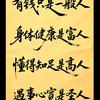 有钱只是一般人
身体健康是富人
懂得知足是高人
遇事心宽是圣人